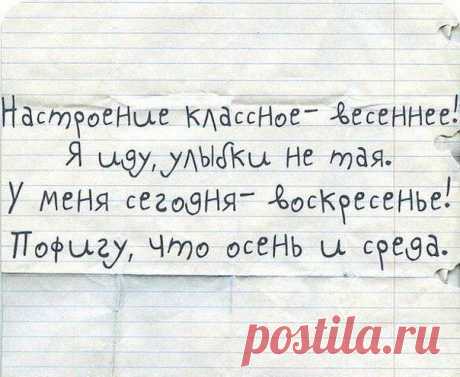 Настроение классное- весеннее!
Я иду, улыбки не тая.
У меня сегодня- воскресенье!
Пофигу, что осень и среда.
postila.ru